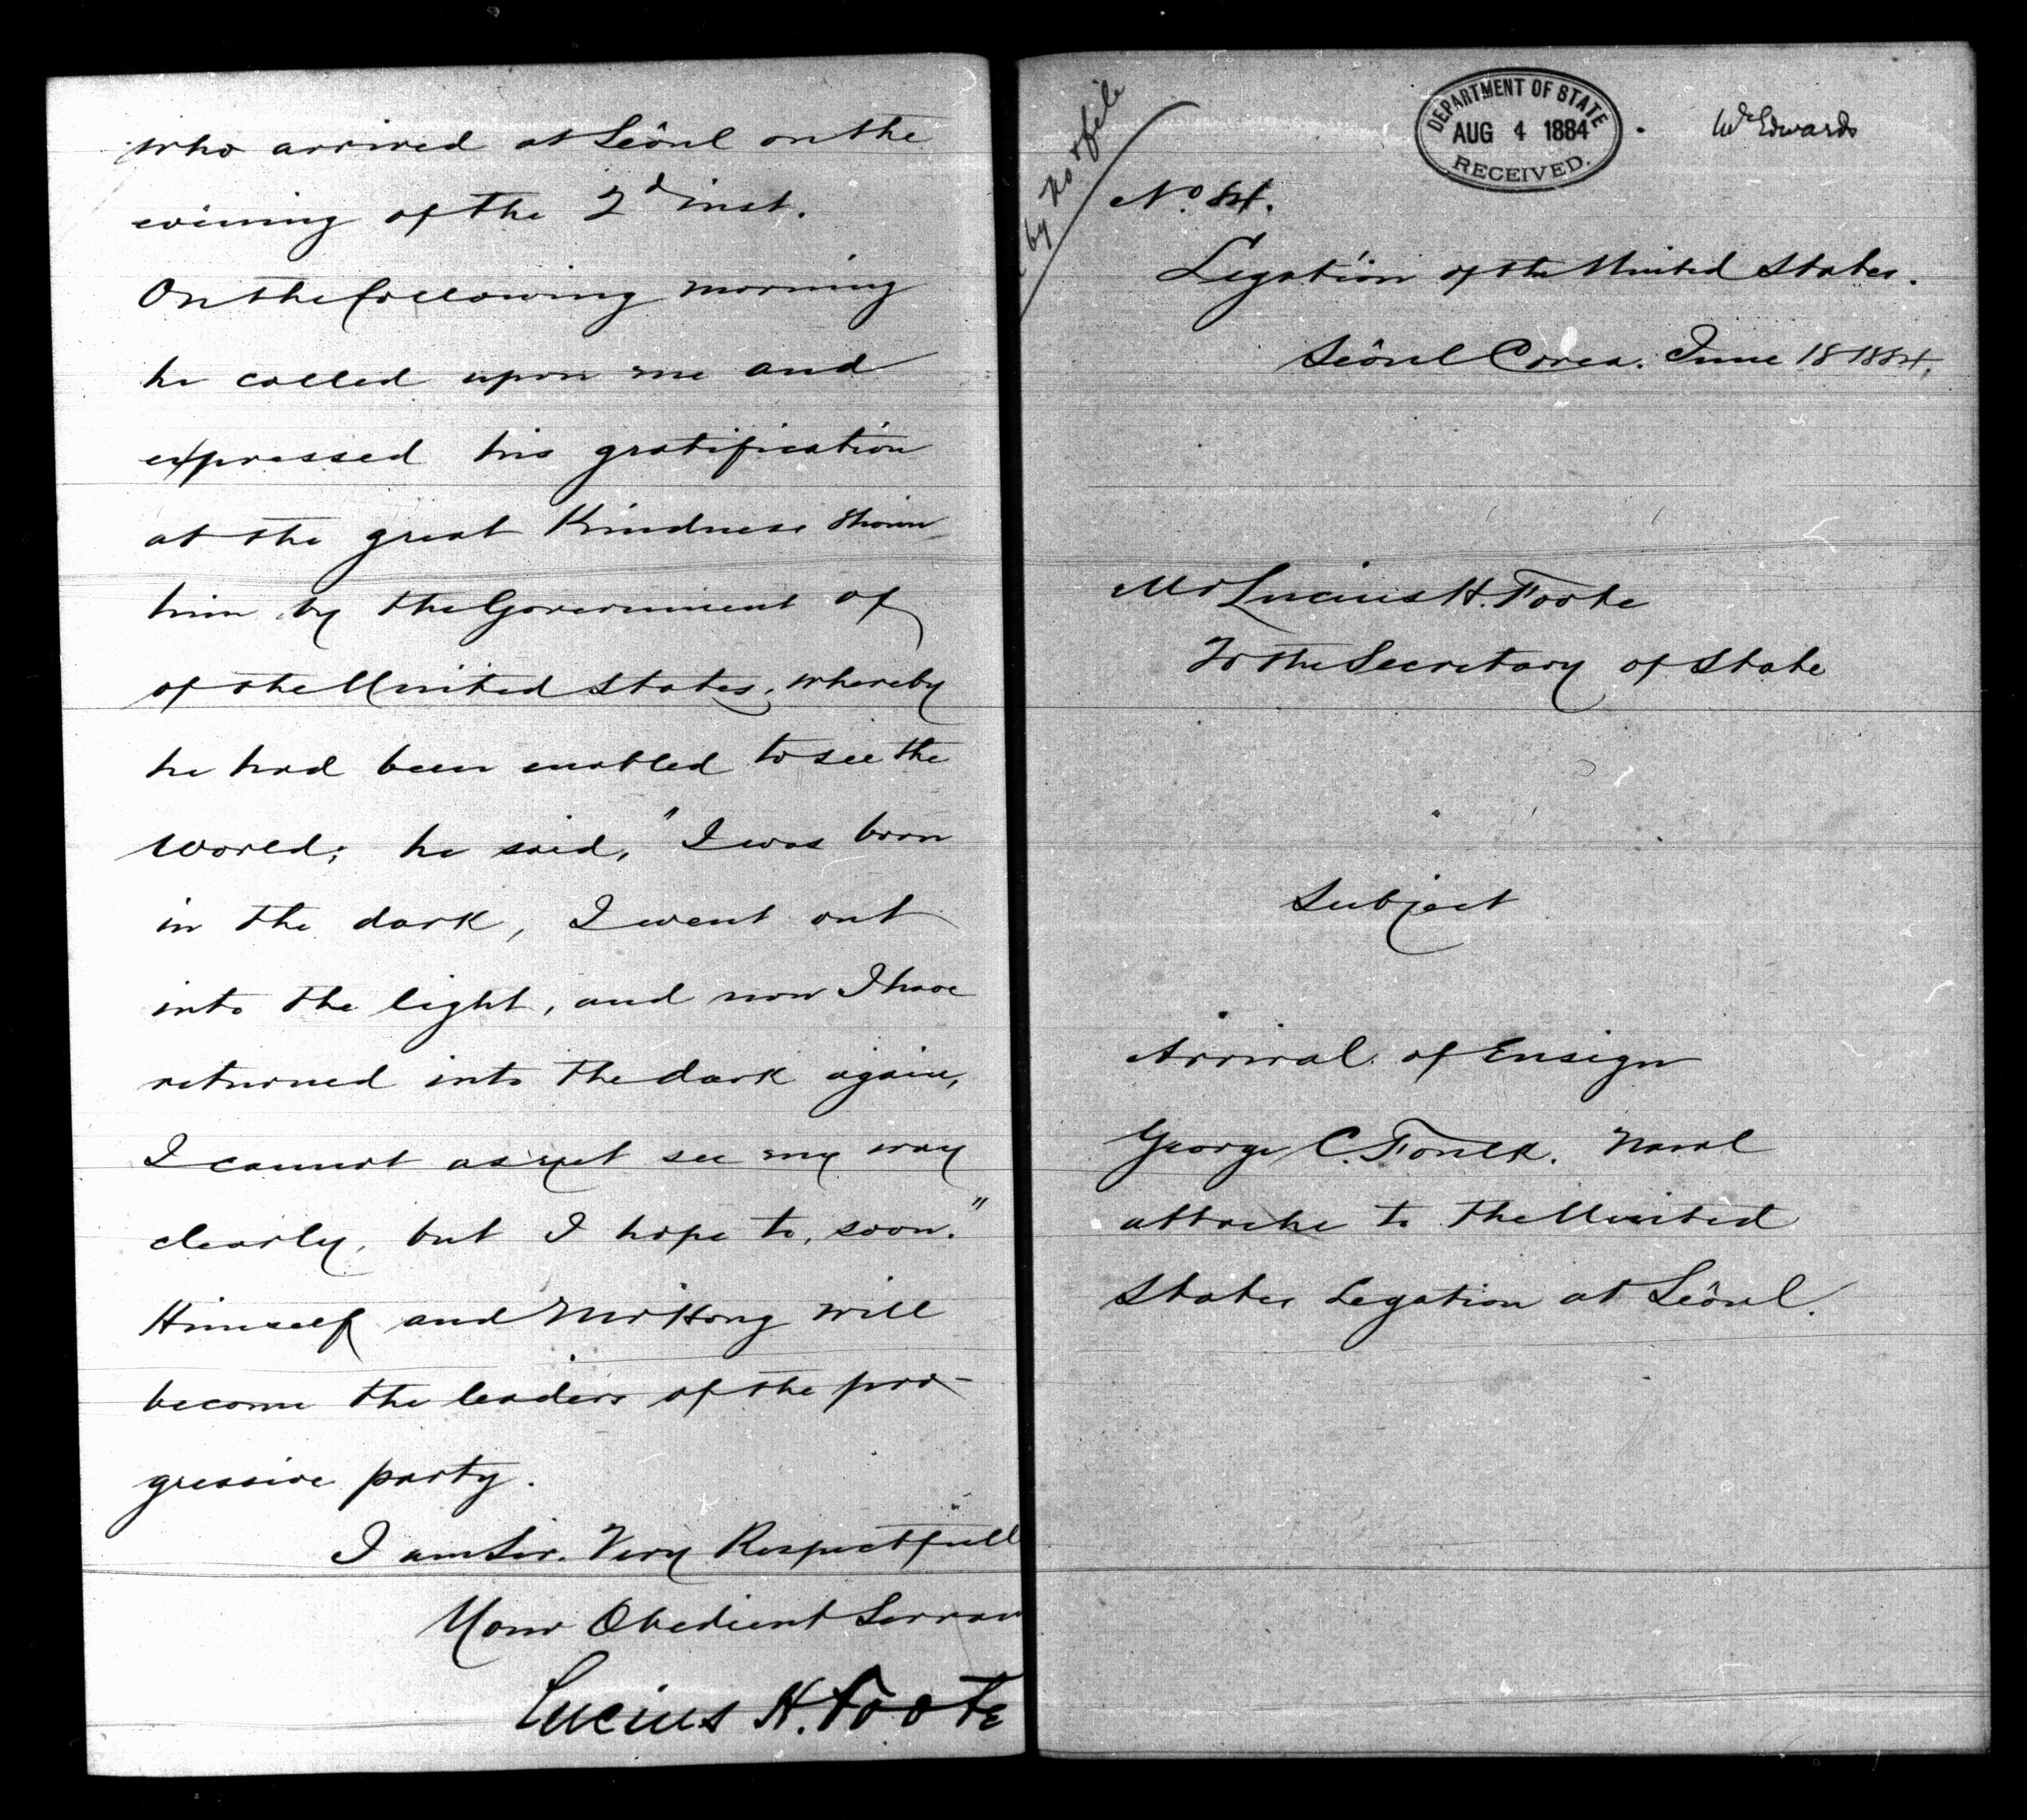 who arrived at Seôul on the
evening of the 2d inst.
On the following morning
he called upon me and
expressed his gratification
at the great Kindness shown
him by the Government of
of the United States, whereby
he had been enabled to see the
world; he said, "I was born
in the dark, I went out
into the light, and now I have
returned into the dark again,
I cannot as yet see my way
clearly, but I hope to, soon."
Himself and Mr Hong will
become the leaders of the pro-
gressive party.
I am Sir. Very Respectfull
Your Obedient Servan
Lucius H. Foote
by no & file
DEPARTMENT OF STATE
AUG 4 1884
RECEIVED.
Edwards
No. 84.
Legation of the United States.
Seôul Corea. June 18 1884.
Mr Lucius H. Foote
To the Secretary of State
Subject
Arrival of Ensign
George C. Foulk. Naval
attache to the United
States Legation at Seôul.